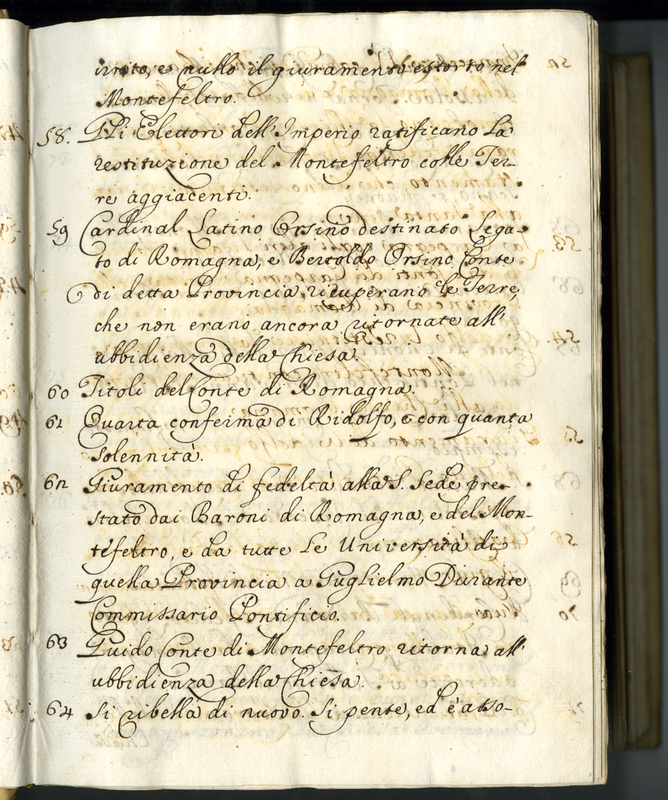 irrito, e nullo il giuramento estorto nel
Montefeltro.
58. Gli Elettori dell'Imperio ratificano la
restituzione del Montefeltro colle Ter-
re aggiacenti.
59 Cardinal Latino Orsino destinato Lega-
to di Romagna, e Bertoldo Orsino Conte
di detta Provincia ricuperano le Terre,
che non erano ancora ritornate all'
ubbidienza della Chiesa.
60 Titoli del Conte di Romagna.
61 Quarta conferma di Ridolfo, e con quanta
solennità.
62 Giuramento di fedeltà alla S. Sede pre-
stato dai Baroni di Romagna, e del Mon-
tefeltro, e da tutte le Università di
quella Provincia a Guglielmo Durante
Commissario Pontificio.
63 Guido Conte di Montefeltro ritorna all'
ubbidienza della Chiesa.
64 Si ribella di nuovo. Si pente, ed è asso-